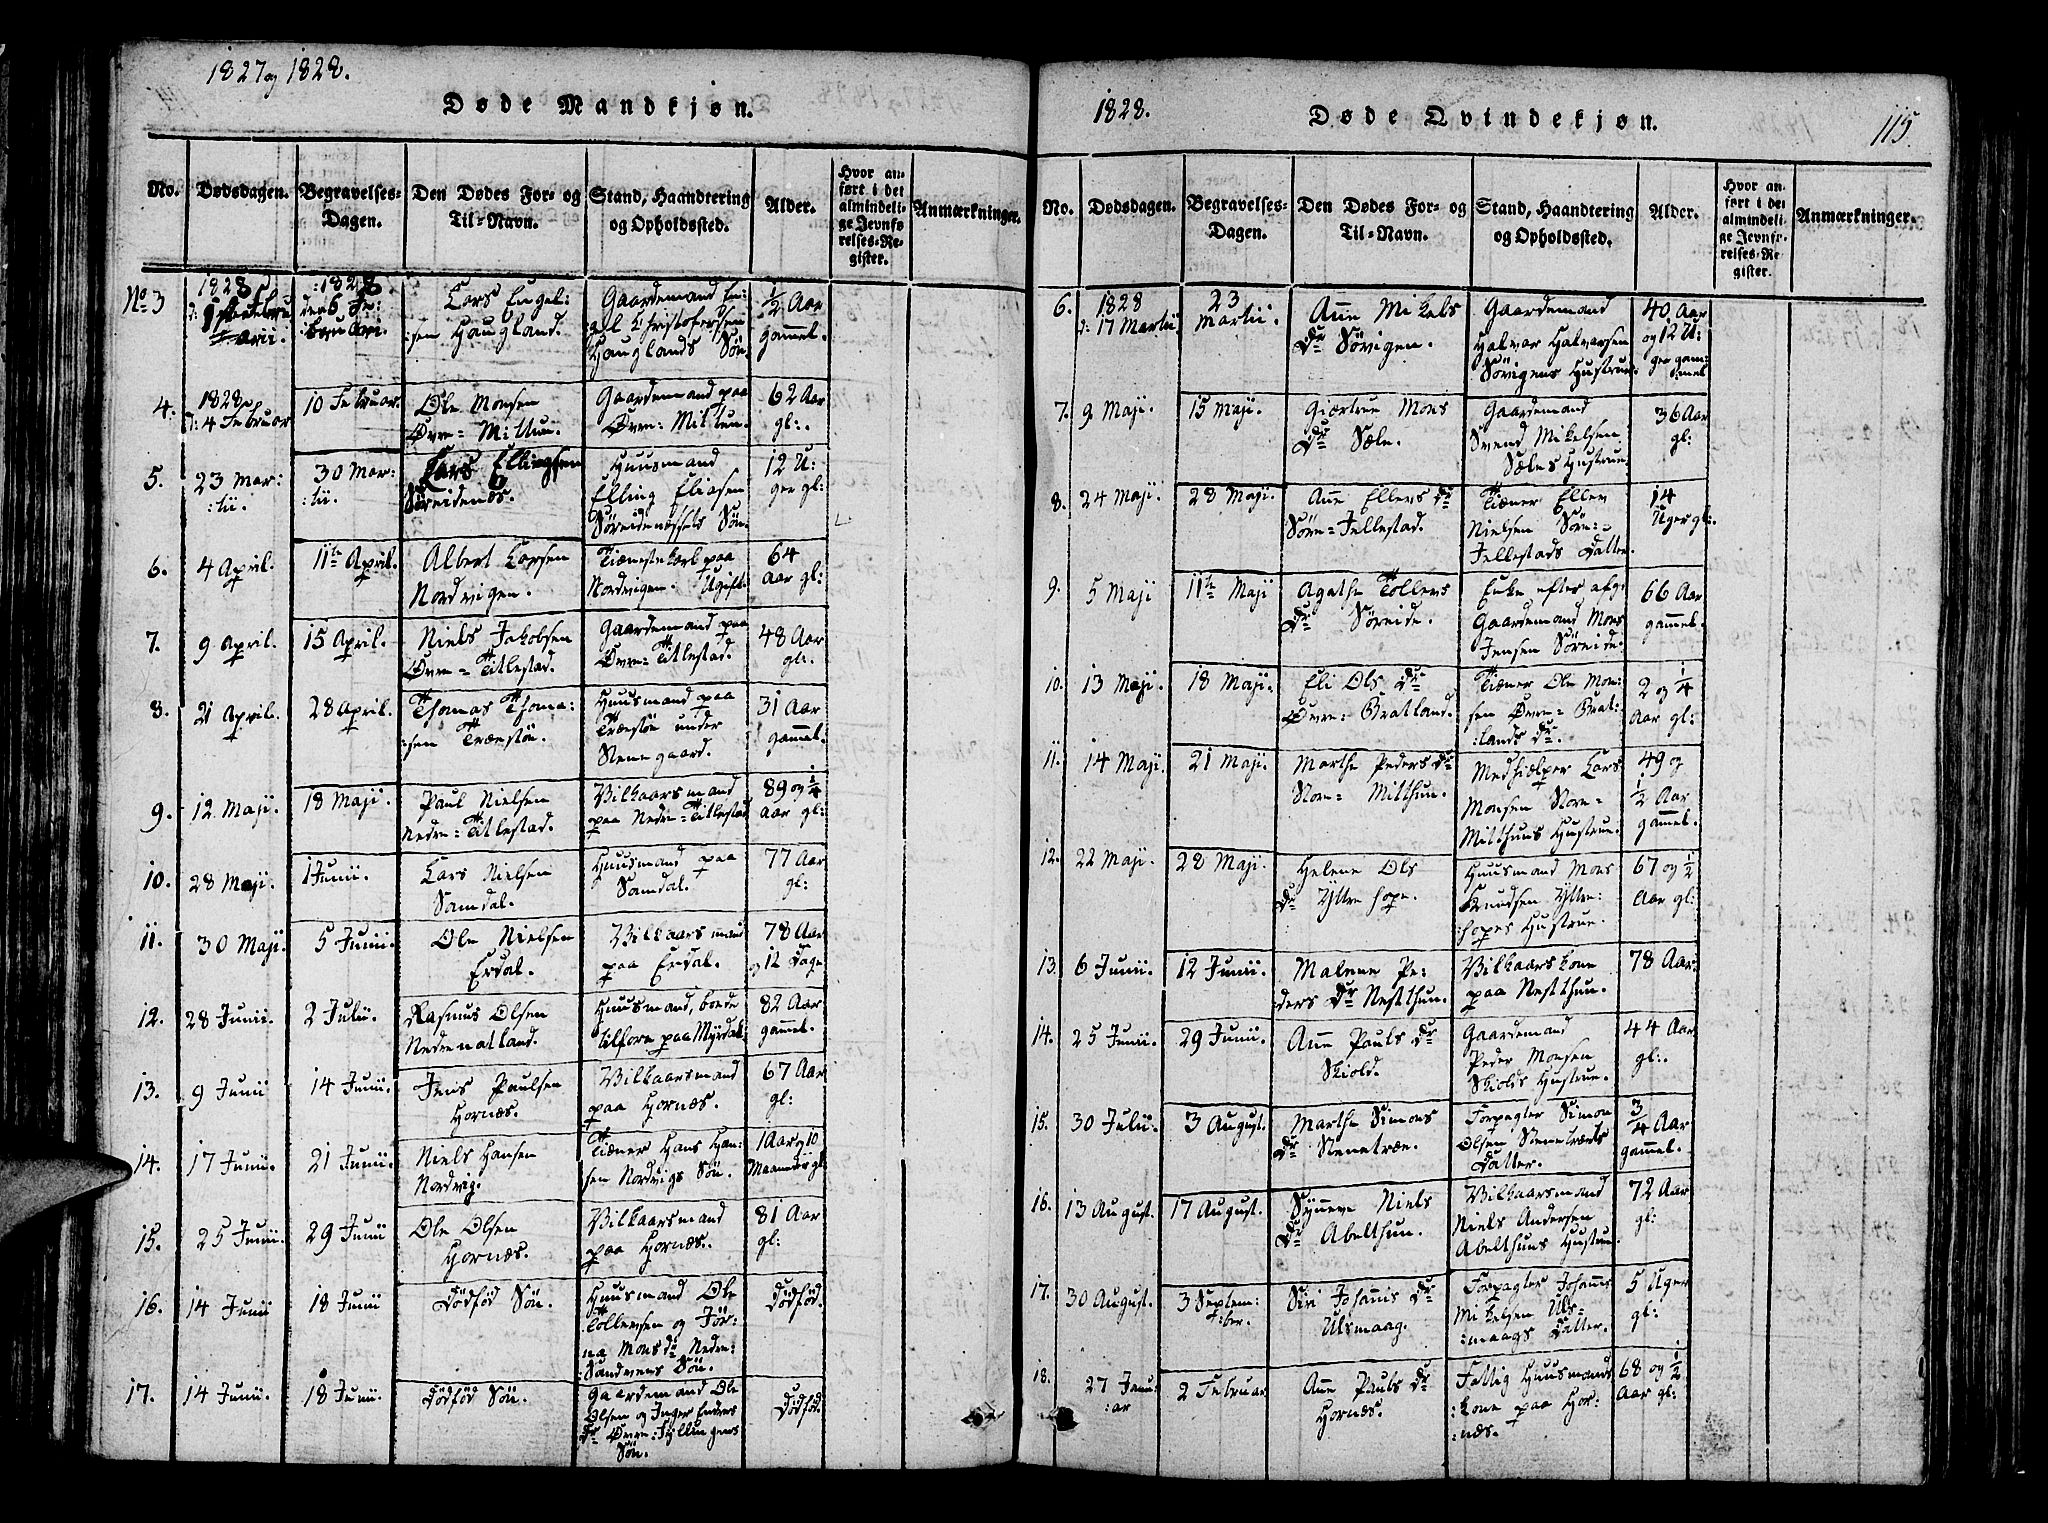 1827 og 1828.
Døde Mandkjøn.
No.
Dødsdagen.
Begravelses-
Dagen.
Den Dødes For- og
Til-Navn.
Stand, Haandtering
og Opholdssted.
Alder.
Hvor an-
ført i det
almindeli-
ge Jevnfø-
relses-Re-
gister.
Anmærkninger.
No 3
1828
1828
den 6 Fe-
bruari.
Lars Engel:
:sen Haugland.
Gaardemand En:
gel Christofersen
Hauglands Søn
1/2 Aar
gammel.
4.
1828
d: 4 Februar
10 Februar.
Ole Monsen
Øvre= Mittun.
Gaardemand paa
Øvre= Mittun.
62 Aar
gl:.
5.
23 Mar:
:tii.
30 Mar:
:tii.
Lars Ellingsen
Søreidenæs.
Huusmand
Elling Eliasen
Søreidenæssets Søn.
12 U:
ger gl:
6.
4 April.
11te April.
Albert Larsen
Nordvigen.
Tienestekarl paa
Nordvigen. Ugift.
64
Aar gl:
7.
9 April.
15 April.
Niels Jakobsen
Øvre= Titlestad.
Gaardemand paa
Øvre= Titlestad.
48 Aar
gl:.
8.
21 April.
28 April.
Thomas Thoma:
:sen Trænstøn.
Huusmand paa
Trænstøn under
Stenegaard.
31 Aar
gammel.
9.
12 Maji.
18 Maji.
Paul Nielsen
Nedre= Titlestad.
Vilkaarsmand
paa Nedre= Titlestad
89 og 1/4
Aar gl:
10.
28 Maji.
1 Junii.
Lars Nielsen
Samdal.
Huusmand paa
Samdal.
77 Aar
gl:
11.
30 Maji.
5 Junii.
Ole Nielsen
Erdal.
Vilkaarsmand
paa Erdal.
78 Aar
og 12 Dage
12.
28 Junii.
2 Julii.
Rasmus Olsen
Nedrenatland.
Huusmand, boede
tilforn paa Myrdal.
82 Aar
gammel.
13.
9 Junii
14 Junii.
Jens Paulsen
Hornæs.
Vilkaarsmand
paa Hornæs.
67 Aar
gl:
14.
17 Junii.
21 Junii.
Niels Hansen
Nordvig.
Tiæner Hans Han:
sen Nordvigs Søn.
1 Aar og 10
Maaneder gl:
15.
25 Junii.
29 Junii
Ole Olsen
Hornæs.
Vilkaarsmand
paa Hornæs.
81 Aar
gl:
16.
14 Junii
18 Junii
Dødfød Søn.
Huusmand Ole
Tollevsen og Jør:
na Monsdr Nedre:
:Sandvens Søn.
Dødfød.
17.
14 Junii.
18 Junii.
Dødfød Søn.
Gaardemand Ole
Olsen og Inger Enders
Dr Øvre:Fyllingens
Søn.
Dødfød.
1828.
Døde Qvindekjøn.
115.
No.
Dødsdagen.
Begravelses-
Dagen.
Den Dødes For- og
Til-Navn.
Stand, Haandtering
og Opholdssted.
Alder.
Hvor an-
ført i det
almindeli-
ge Jevnfø-
relses-Re-
gister.
Anmærkninger.
6.
1828
d: 17 Martii
23
Martii.
Ane Mikels
Dr Sørvigen.
Gaardemand
Halvar Halvarsen
Sørvigens Hustrue.
40 Aar
og 12 U:
ger gam:
:mel
7.
9 Maji.
15 Maji.
Giærtrue Mons
Dr Sæle.
Gaardemand
Svend Mikelsen
Sæles Hustrue.
36 Aar
gl:
8.
24 Maji.
28 Maji.
Ane Ellers Dr
Søre=Jellestad.
Tiæner Eller
Nielsen Søre:
Jellestads Datter.
14
Uger gl:
9.
5 Maji
11te Maji
Agathe Tollevs
Dr Søreide.
Enke efter afg:
Gaardemand Mons
Jensen Søreide.
66 Aar
gammel.
10.
13 Maji.
18 Maji.
Eli Ols Dr
Øvre= Bratland.
Tiæner Ole Mon:
sen Øvre= Brat:
:lands Dr.
2 og 1/4
Aar gl:
11.
14 Maji.
21 Maji.
Marthe Peders Dr
Store= Mitthun.
Medhjælper Lars
Monsen Store=
Mitthuns Hustrue.
49 og
1/2 Aar
gammel.
12.
22 Maji.
28 Maji.
Helene Ols
Dr Ytre Hope.
Huusmand Mons
Knudsen Yttre:
:hopes Hustrue.
67 og 1/2
Aar gl:
13.
6 Junii.
12 Junii.
Malene Pe:
ders Dr Nestthun.
Vilkaarskone
paa Nestthun.
78 Aar.
14.
25 Junii.
29 Junii.
Ane Pauls Dr
Skiold.
Gaardemand
Peder Monsen
Skiolds Hustrue.
44 Aar
gl:.
15.
30 Julii.
3 August.
Marthe Simons
Dr Stenetræe.
Forpagter Simon
Olsen Stenetræets
Datter.
3/4 Aar
gammel.
16.
13 August.
17 August.
Synneve Niels
Dr Abelthun.
Vilkaarsmand
Niels Andersen
Abelthuns Hustrue.
72 Aar
gl:
17.
30 August.
3 Septem:
:ber.
Siri Johannis Dr
Ulsmaag.
Forpagter Johannis
Mikelsen Uls-
:maags Datter.
5 Uger
gl:
18.
27 Janu:
:ar
2 Februar
Ane Pauls Dr
Hornæs.
Fattig Huusmands
:kone paa Hor:
:næs.
68 og 1/2
Aar gl: